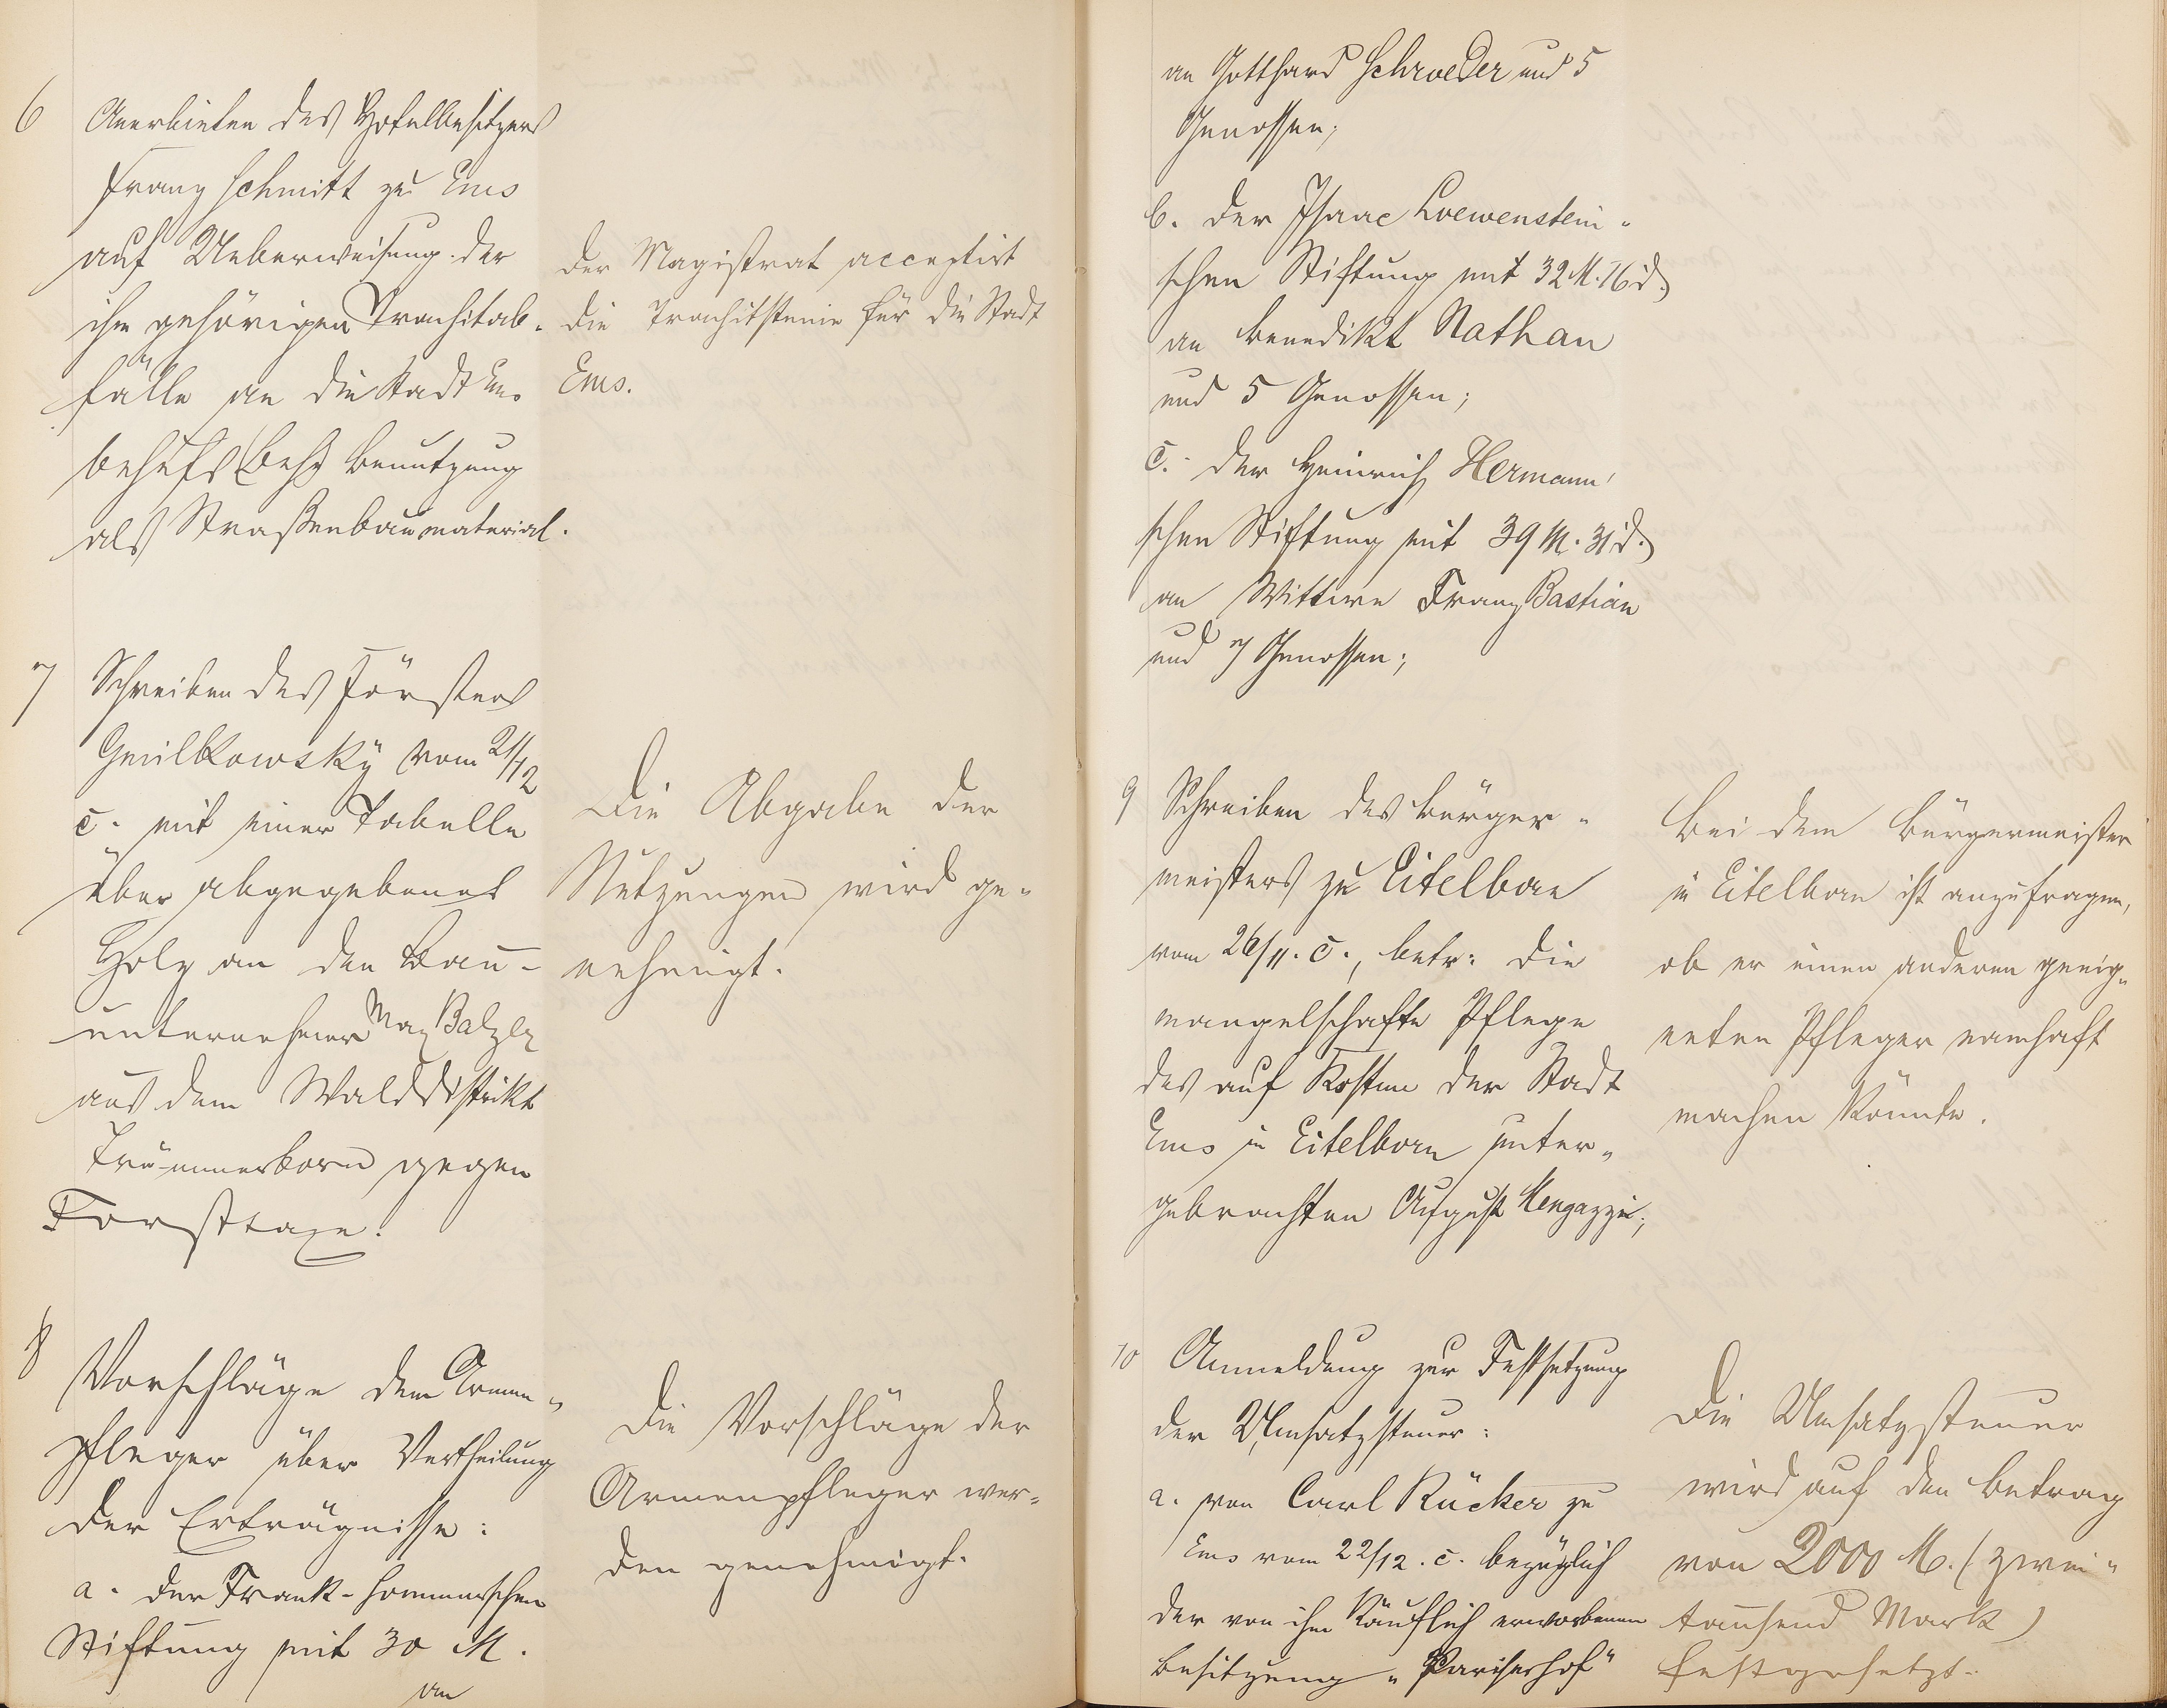 6
Anerbieten des Hotelbesitzers
Franz Schmitt zu Ems
auf Ueberweisung der
ihm gehörigen Trachitab-
fälle an die Stadt Ems
behufs Benutzung
als Straßenbaumaterial.
Der Magistrat acceptirt
die Trachitsteine für die Stadt
Ems.
7
Schreiben des Försters
Gmilkowsky vom 21/12
c. mit einer Tabelle
über abgegebenes
Holz an den Bau-
unternehmer Max Balzer
aus dem Walddistrikt
gegen
Forsttaxe.
Die Abgabe der
Nutzungen wird ge-
nehmigt.
8
Vorschläge der Armen-
pfleger über Vertheilung
der Erträgnisse:
a. der Frank-
Stiftung mit 30 M.
an
Die Vorschläge der
Armenpfleger wer-
den genehmigt.
an Gotthard Schroeder und 5
Genossen;
b. der Isaac Loewenstein-
schen Stiftung mit 32 M. 76 d.
an Benedikt Nathan
und 5 Genossen;
c. der Heinrich Hermann'
schen Stiftung mit 39 M. 31 d.
an Wittwe Franz Bastian
und 7 Genossen;
9
Schreiben des Bürger-
meisters zu Eitelborn
vom 26/11. c., betr: die
mangelhafte Pflege
des auf Kosten der Stadt
Ems in Eitelborn unter-
gebrachten August Mengazzi;
Bei dem Bürgermeister
in Eitelborn ist anzufragen,
ob er einen anderen geeig-
neten Pfleger namhaft
machen könnte.
10
Anmeldung zur Festsetzung
der Umsatzsteuer:
a. von Carl Rücker zu
Ems vom 22/12. c. bezüglich
der von ihm käuflich erworbenen
Besitzung "Pariserhof"
Die Umsatzsteuer
wird auf den Betrag
von 2000 M. (zwei-
tausend Mark)
festgesetzt.